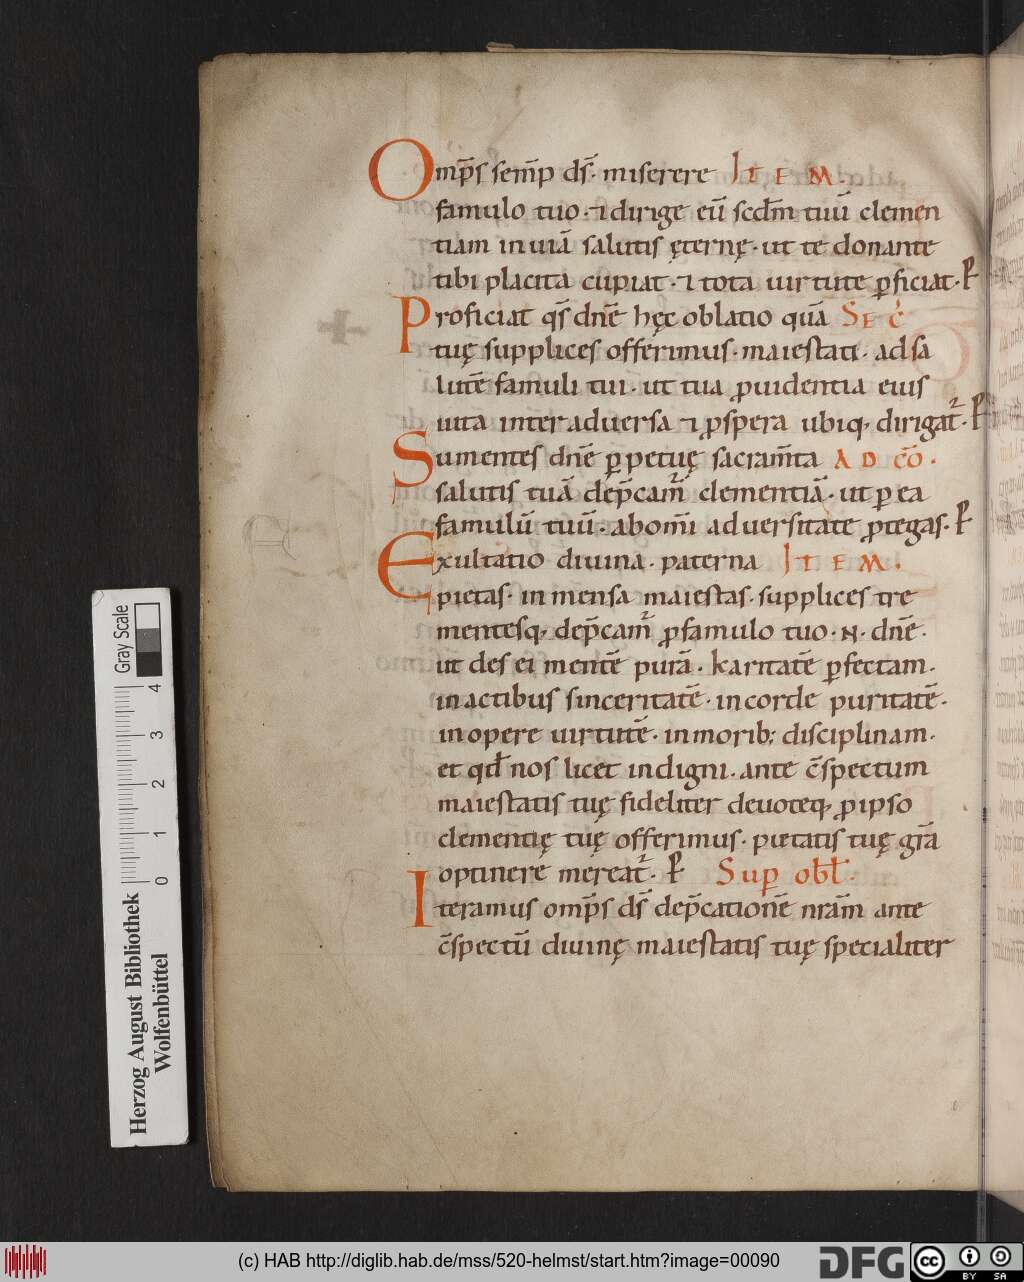 Omp̄s sem̄p ds̄· miserere ITEM·
famulo tuo· ⁊ dirige eū scdm̄ tuū clemen
tiam inuiā salutis ęternę· ut te donante
tibi placita cupiat· ⁊ tota uirtute ꝑficiat· ꝑ
Proficiat qs̄ dn̄e hęc oblatio quā SEC̄
tuę supplices offerimus· maiestati· adsa
lutē famuli tui· ut tua ꝓuidentia eius
uita inter aduersa ⁊ ꝓspera ubiq, dirigat᷑· ꝑ
Sumentes dn̄e ꝑpetuę sacram̄ta AD CŌ·
salutis tuā dep̄cam᷑ clementiā· ut ꝑ ea
famulū tuū· abom̄i aduersitate ꝓtegas· ꝑ
Exultatio diuina· paterna ITEM·
pietas· in mensa maiestas· supplices tre
mentesq, dep̄cam᷑ ꝓfamulo tuo· N· dn̄e·
ut des ei mentē purā· karitatē ꝑfectam·
in actibus sinceritatē· in corde puritatē·
in opere uirtutē· in morib; disciplinam·
et qđ nos licet indigni· ante c̄spectum
maiestatis tuę fideliter deuoteq, ꝓipso
clementię tuę offerimus· pietatis tuę grā
optinere mereat᷑· ꝑ Suꝑ obł·
Iteramus omp̄s ds̄ dep̄cationē nrām ante
c̄spectū diuinę maiestatis tuę specialiter
Gray Scale
0 1 2 3 4
Herzog August Bibliothek
Wolfenbüttel
(c) HAB http://diglib.hab.de/mss/520-helmst/start.htm?image=00090
DFG
cc
BY SA